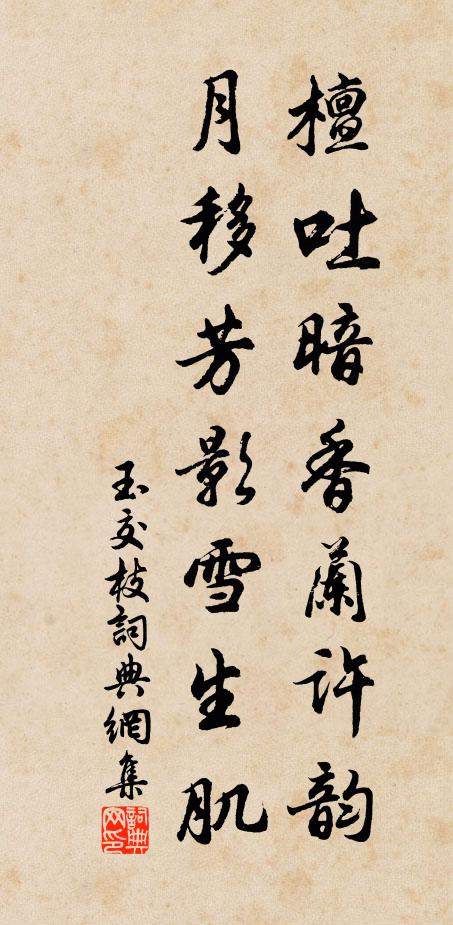 檀吐暗香蘭許韵
月移芳影雪生肌
玉交枝詞典網集
詞典
网印